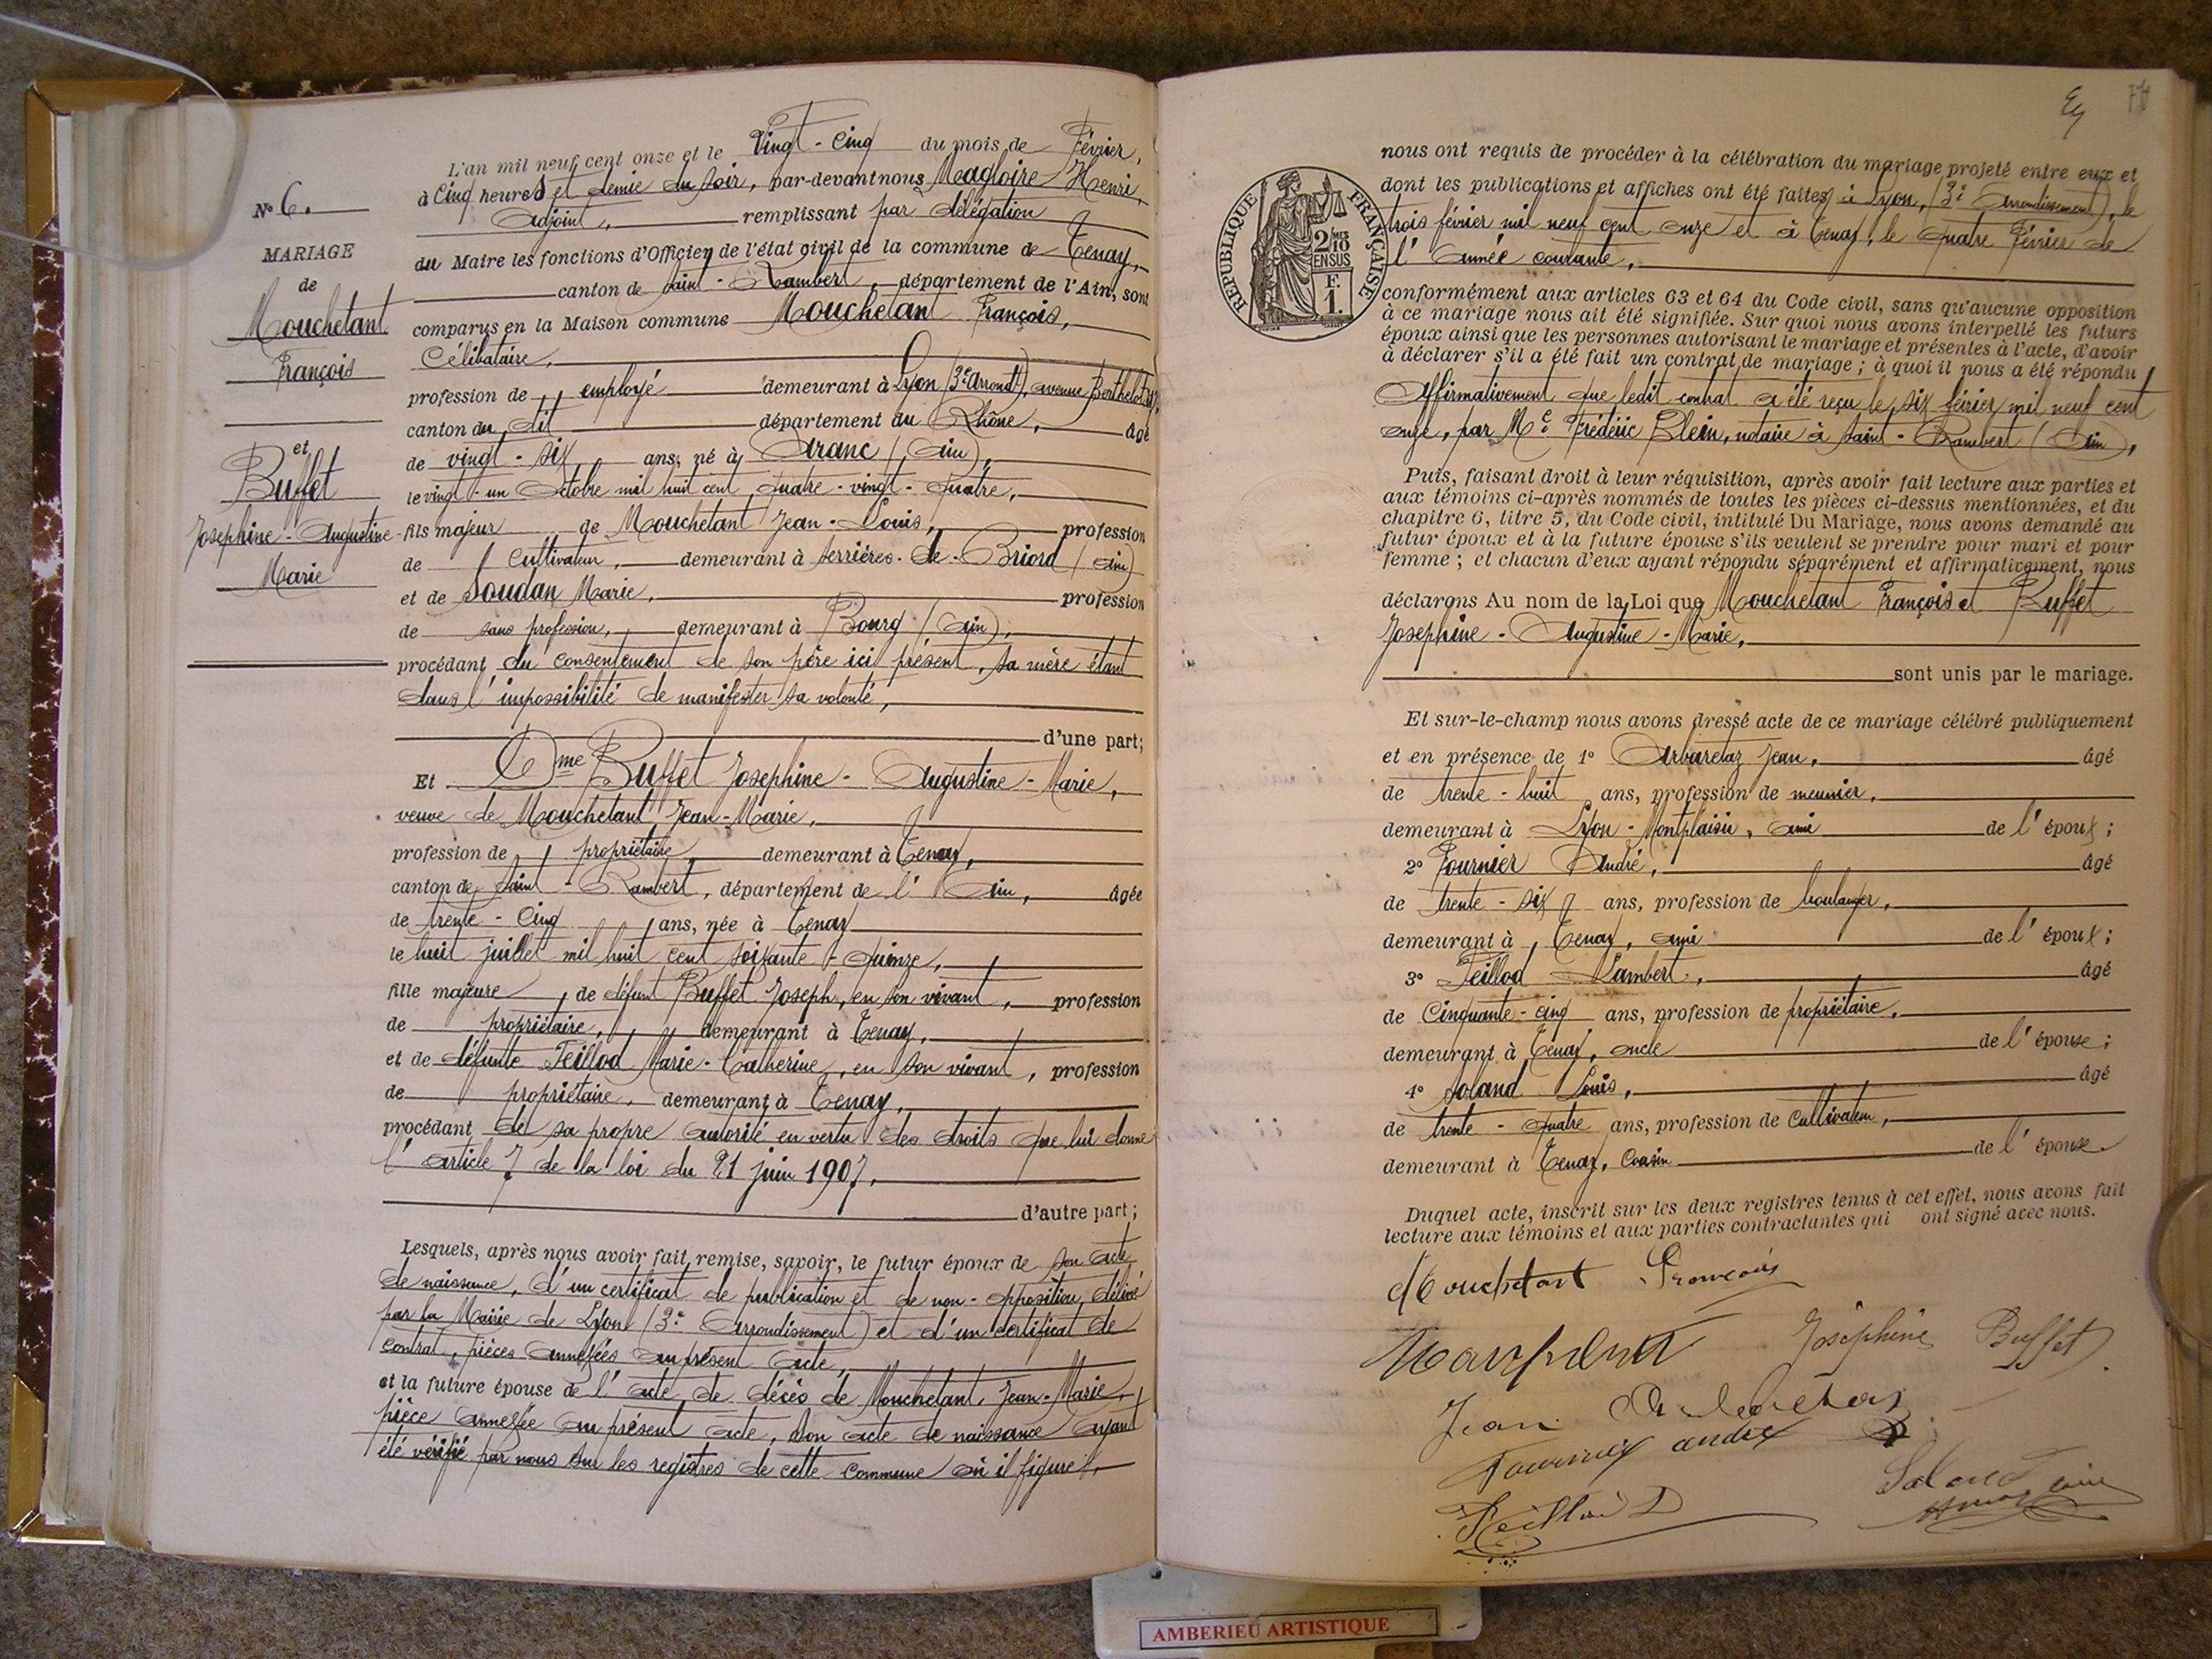 L'an mil neuf cent onze et le Vingt-Cinq du mois de Février,
à Cinq heures et demie du soir, par-devant nous Magloire Henri,
Adjoint, remplissant par délégation
du Maire les fonctions d'Officier de l'état civil de la commune de Tenay,
canton de Saint-Rambert, département de l'Ain, sont
comparus en la Maison commune Mouchetant François,
Célibataire,
profession de employé demeurant à Lyon (3e Arrondt), avenue Berthelot
canton du dit département du Rhône, âgé
de vingt-six ans, né à Aranc (Ain),
le vingt-un Octobre mil huit cent quatre-vingt-quatre,
fils majeur de Mouchetant Jean-Louis, profession
de Cultivateur, demeurant à Serrières-de-Briord (Ain)
et de Soudan Marie, profession
de sans profession, demeurant à Bourg (Ain),
procédant du consentement de son père ici présent, sa mère étant
dans l'impossibilité de manifester sa volonté,
d'une part;
Et Dme Buffet Josephine-Augustine-Marie,
veuve de Mouchetant Jean-Marie,
profession de propriétaire, demeurant à Tenay,
canton de Saint-Rambert, département de l'Ain, âgée
de trente-Cinq ans, née à Tenay
le huit juillet mil huit cent soixante-quinze,
fille majeure de défunt Buffet Joseph, en son vivant, profession
de propriétaire, demeurant à Tenay,
et de défunte Teillod Marie-Catherine, en son vivant, profession
de propriétaire, demeurant à Tenay,
procédant de sa propre autorité en vertu des droits que lui donne
l'article 7 de la loi du 21 juin 1907,
d'autre part;
Lesquels, après nous avoir fait remise, savoir, le futur époux de son acte
de naissance, d'un certificat de publication et de non-opposition, délivré
par la Mairie de Lyon (3e Arrondissement) et d'un certificat de
contrat, pièces annexées au présent acte,
et la future épouse de l'acte de décès de Mouchetant Jean-Marie,
pièce annexée au présent acte, son acte de naissance ayant
été vérifié par nous sur les registres de cette commune où il figure,
N° 6.
MARIAGE
de
Mouchetant
François
et
Buffet
Josephine-Augustine-
Marie
RÉPUBLIQUE FRANÇAISE
2/10
EN SUS
F.
1.
nous ont requis de procéder à la célébration du mariage projeté entre eux et
dont les publications et affiches ont été faites à Lyon, (3e Arrondissement), le
trois février mil neuf cent onze et à Tenay, le quatre Février de
l'année courante,
conformément aux articles 63 et 64 du Code civil, sans qu'aucune opposition
à ce mariage nous ait été signifiée. Sur quoi nous avons interpellé les futurs
époux ainsi que les personnes autorisant le mariage et présentes à l'acte, d'avoir
à déclarer s'il a été fait un contrat de mariage; à quoi il nous a été répondu
Affirmativement que ledit contrat a été reçu le six février mil neuf cent
onze, par Me Frédéric Blein, notaire à Saint-Rambert (Ain),
Puis, faisant droit à leur réquisition, après avoir fait lecture aux parties et
aux témoins ci-après nommés de toutes les pièces ci-dessus mentionnées, et du
chapitre 6, titre 5, du Code civil, intitulé Du Mariage, nous avons demandé au
futur époux et à la future épouse s'ils veulent se prendre pour mari et pour
femme; et chacun d'eux ayant répondu séparément et affirmativement, nous
déclarons Au nom de la Loi que Mouchetant François et Buffet
Josephine-Augustine-Marie,
sont unis par le mariage.
Et sur-le-champ nous avons dressé acte de ce mariage célébré publiquement
et en présence de 1° Arbaretaz Jean, âgé
de trente-huit ans, profession de meunier,
demeurant à Lyon-Montplaisir, ami de l'époux;
2° Fournier André, âgé
de trente-six ans, profession de boulanger,
demeurant à Tenay, ami de l'époux;
3° Teillod Lambert, âgé
de Cinquante-cinq ans, profession de propriétaire,
demeurant à Tenay, oncle de l'épouse;
4° Soland Louis, âgé
de trente-quatre ans, profession de Cultivateur,
demeurant à Tenay, Cousin de l'épouse
Duquel acte, inscrit sur les deux registres tenus à cet effet, nous avons fait
lecture aux témoins et aux parties contractantes qui ont signé avec nous.
Mouchetant François
Josephine Buffet
Jean
Fournier andré
Teillod
Soland
AMBERIEU ARTISTIQUE